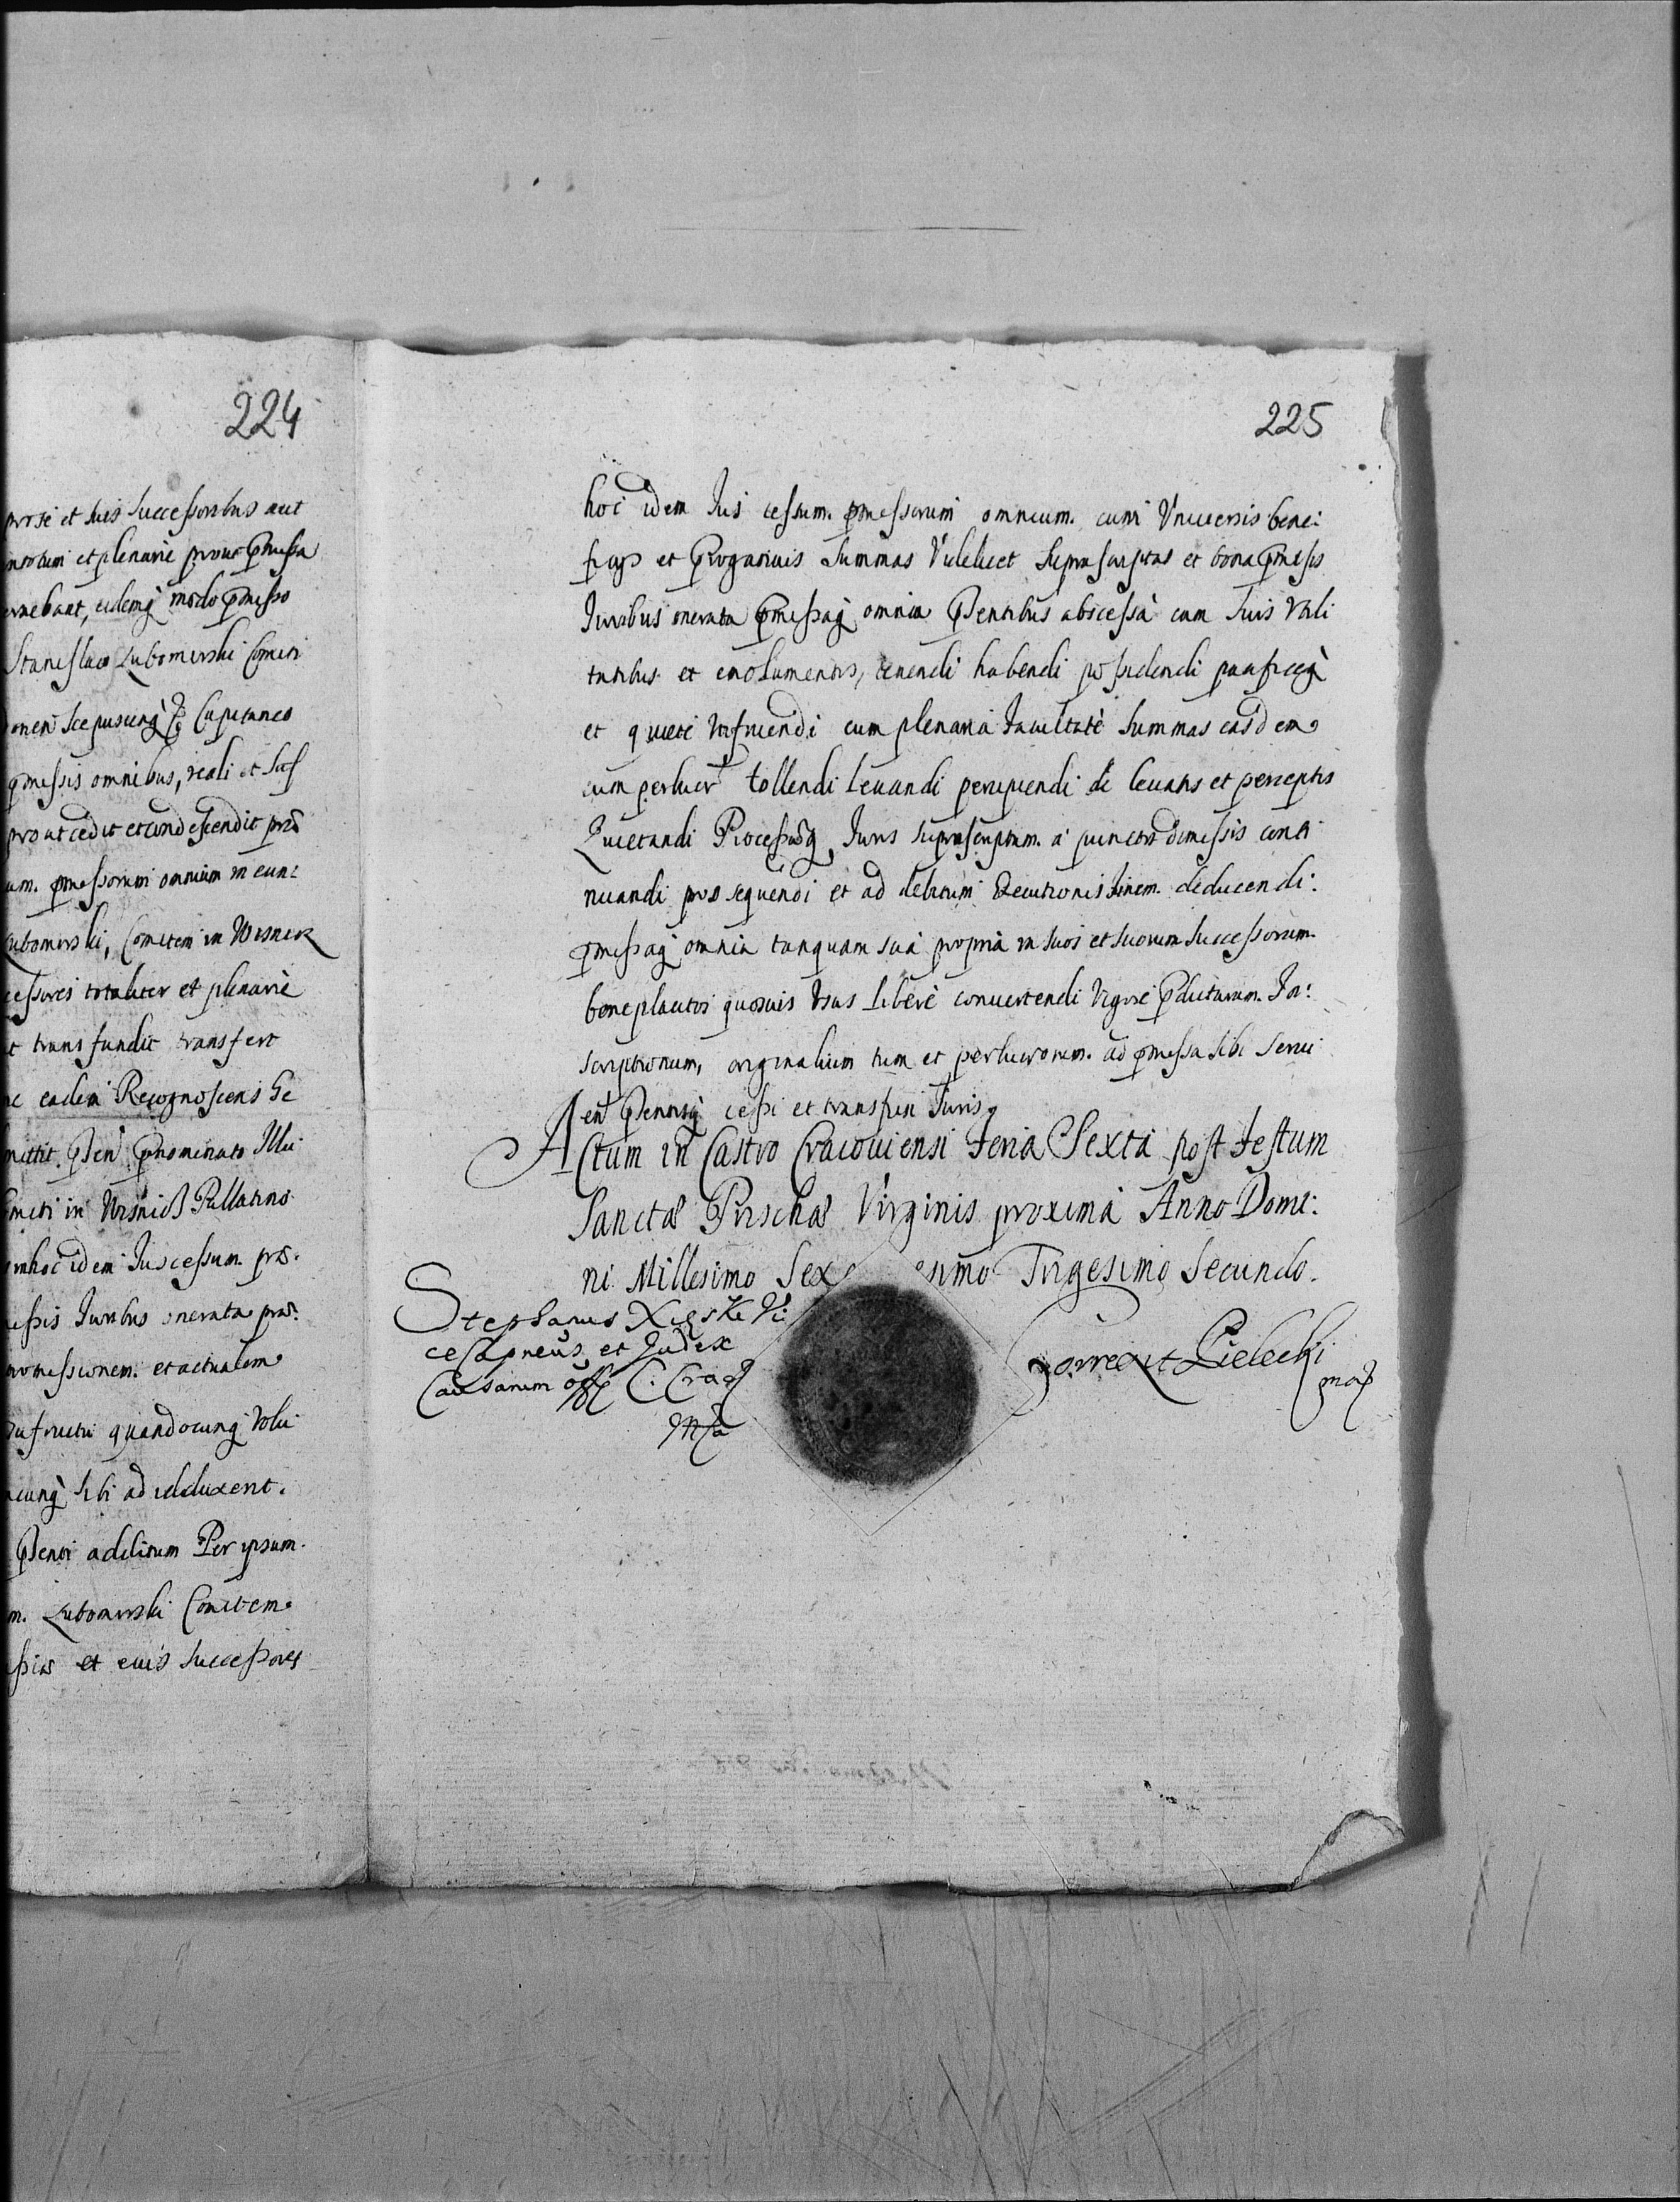 224
prose et suis Successoribus aut
in totum et plenarie prout pmissa
vnebant, eidemq modo pmisso
Stanislao Lubomirski Comiti
onen Scepusienq Capitaneo
pmissis omnibus, reali et Suf
prout cedit et condescendit præ
um. pmissorum omnium in eun:
Lubomirski, Comitem in Wisnicz
cessores totaliter et plenarie
t transfundit transfert
c eadem Recognoscens Ge
mittit. Psen Pnominato Illu
omiti in Wisnicz Pallatino
in hoc idem Jus cessum. præ:
issis Juribus onerata præ:
romissionem. et actualem
usufructu quandocunq Volu
cunq sibi ad id duxerit.
Psenti aditum Per ipsum.
m. Lubomirski Comitem
ssias et eius Successores
225
hoc idem Jus cessum. pmissorum omnium. cum Vniuersis bene:
ficys et Progatiuis Summas Videlicet Suprascriptas et bona pmissis
Juribus onerata pmissaq omnia Psentibus abscessa cum suis Vtili
tatibus et emolumentis, tenendi habendi possidendi pacificeq
et quiete Vtifruendi cum plenaria Facultate Summas easdem
cum perlucr tollendi leuandi percipiendi de leuatis et perceptis
Quietandi Processusq Juris suprascriptum. a punctis dimissis conti
nuandi prosequendi et ad debitum Executionis Finem. deducendi:
pmissaq omnia tanquam sua propria in suos et suorum Successorum
beneplacitos quosuis Vsus libere conuertendi Vigore Pdictarum. In:
scriptionum, originalium tum et perlucrorum. ad pmissa sibi Serui
en Psentisq cessi et transfusi Juris.
Actum in Castro Cracouiensi Feria Sexta post Festum
Sanctæ Priscæ Virginis proxima Anno Domi:
ni Millesimo Sex esimo Trigesimo Secundo.
Stephanus Xięski Vi
ceCapneus et Judex
Causarum offi C. Crac
Mp
Correxit Lielecki
mp